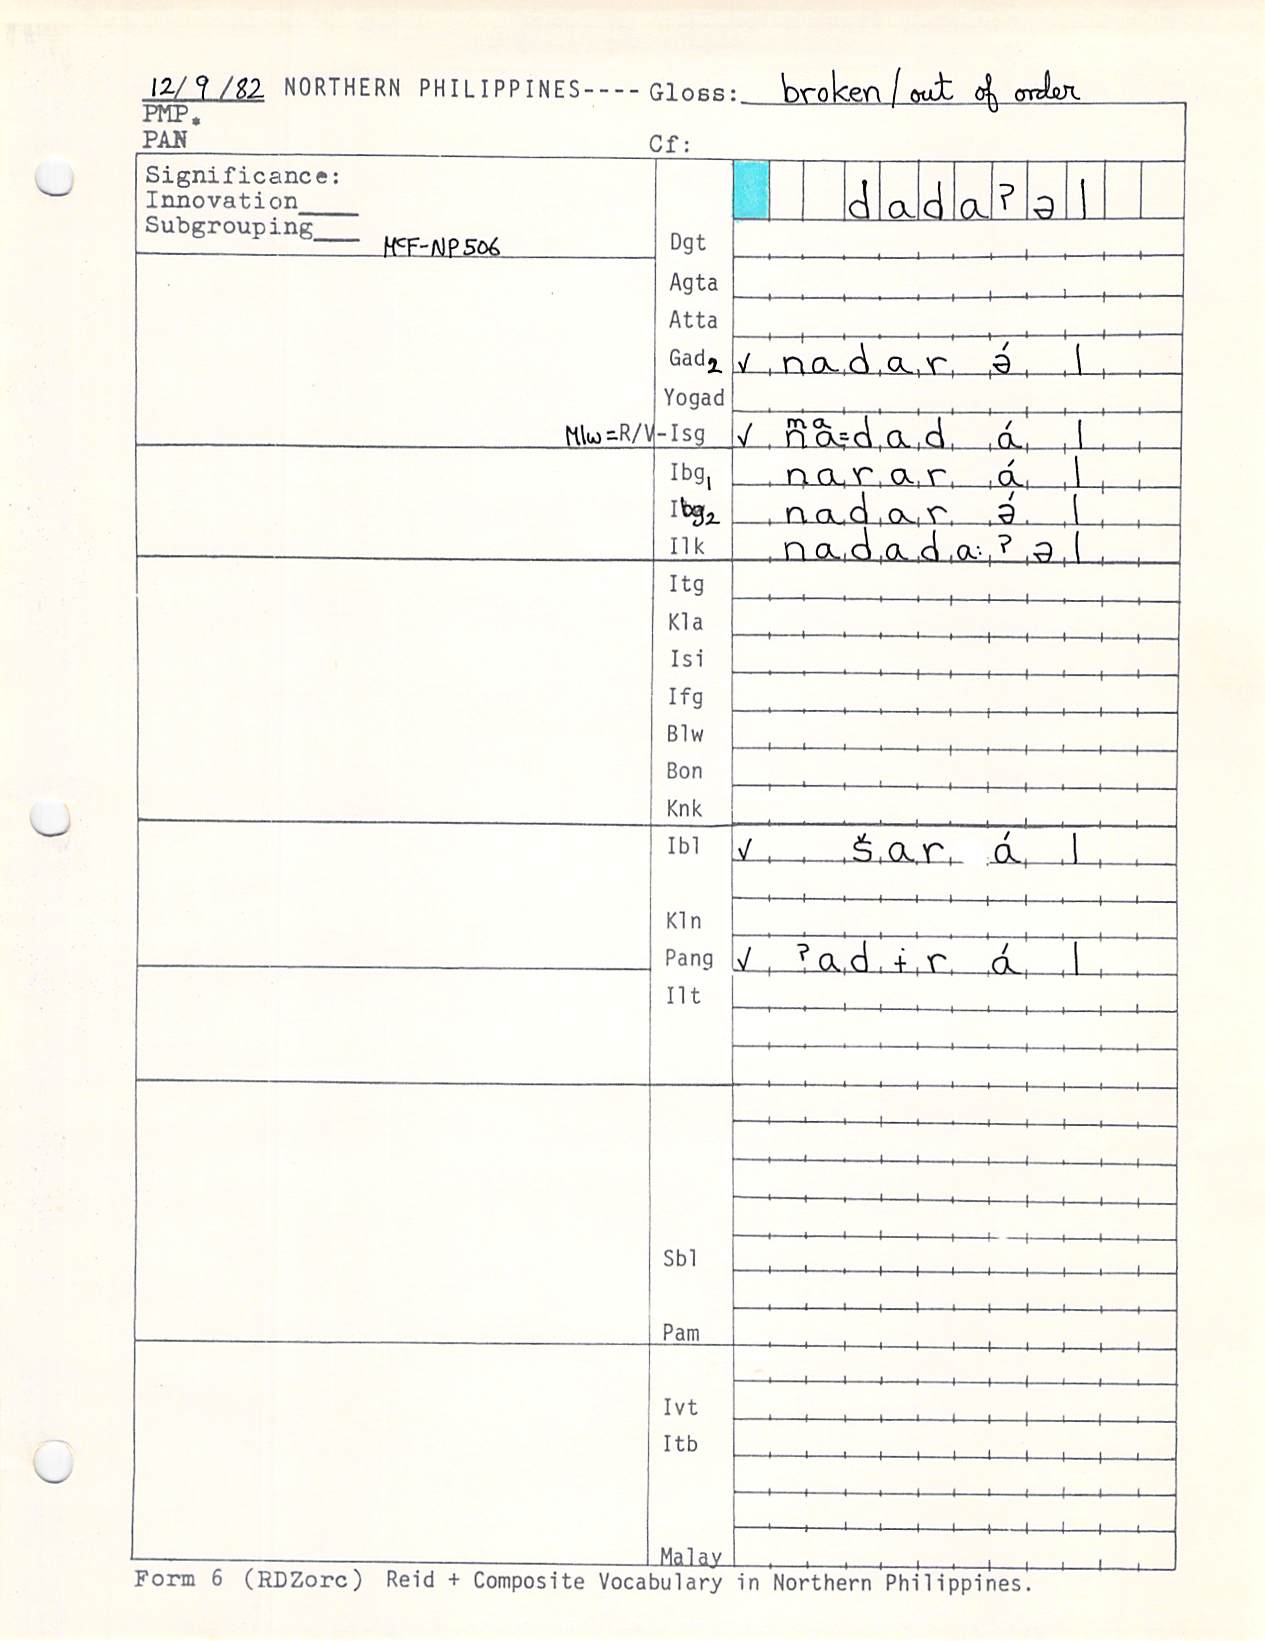 12/9/82 NORTHERN PHILIPPINES---- Gloss: broken/out of order
PMP.
PAN Cf:
Significance:
Innovation____
Subgrouping___
McF-NP506
dadaʔəl
Dgt
Agta
Atta
Gad2 ✓ nadarə́l
Yogad
Mlw=R/V-Isg ✓ ma na=dadál
Ibg1 nararál
Ibg2 nadarə́l
Ilk nadada:ʔəl
Itg
Kla
Isi
Ifg
Blw
Bon
Knk
Ibl ✓ šarál
Kln
Pang ✓ ʔadɨrál
Ilt
Sbl
Pam
Ivt
Itb
Malay
Form 6 (RDZorc) Reid + Composite Vocabulary in Northern Philippines.